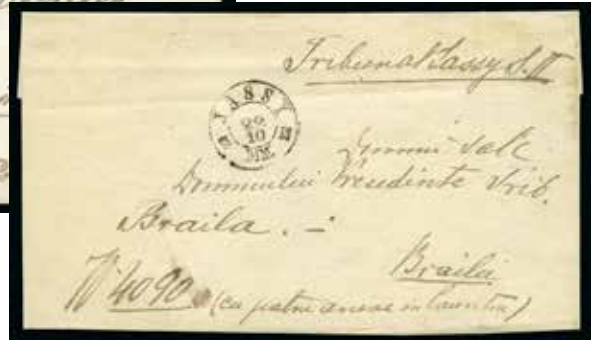 Tribunal Iassy S. II
YASSY
10
Domnului Presedinte Trib.
Braila . –
Braila
No 4090 (cu patru anexe in launtru)